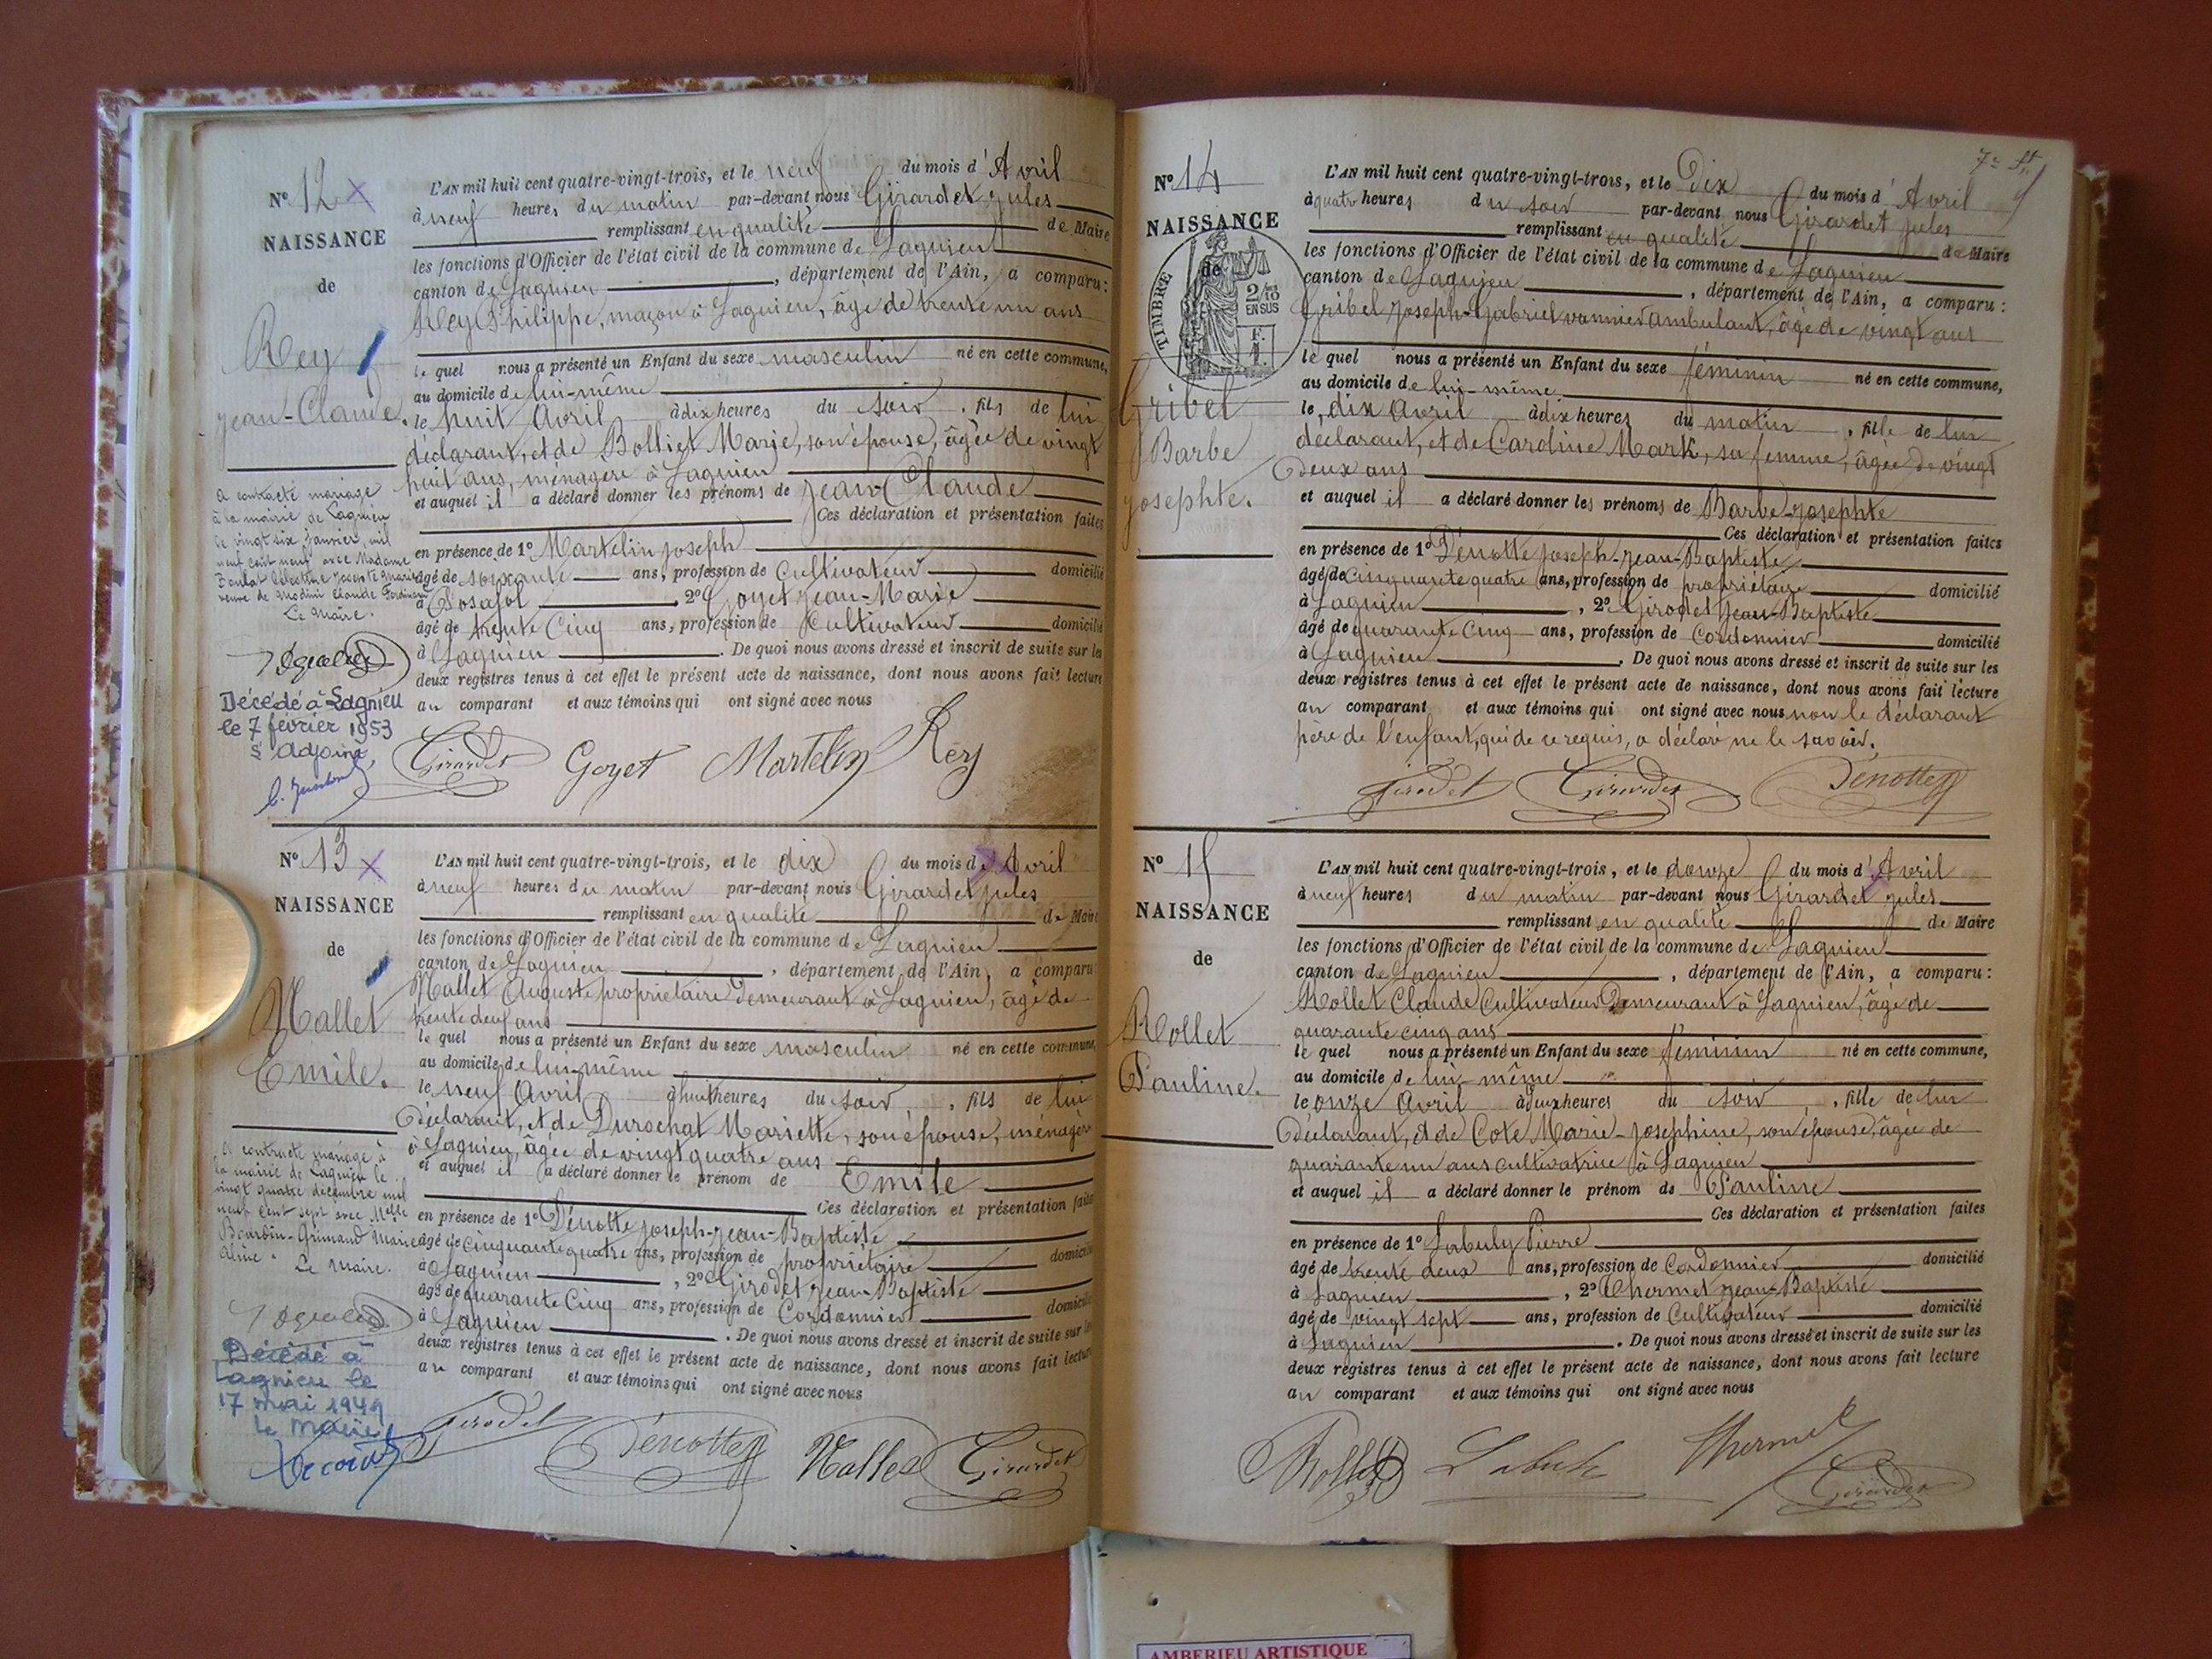 No 12 x
NAISSANCE
de
Rey
Jean-Claude.
a contracté mariage
à la mairie de Lagnieu
le vingt six janvier, mil
neuf cent neuf avec Madame
veuve de Claude Ferdinand
Le Maire.
Décédé à Lagnieu
le 7 février 1953
L'AN mil huit cent quatre-vingt-trois, et le neuf du mois d'Avril
à neuf heures du matin par-devant nous Girardet Jules
remplissant en qualité de Maire
les fonctions d'Officier de l'état civil de la commune de Lagnieu
canton de Lagnieu, département de l'Ain, a comparu:
Rey Philippe, maçon à Lagnieu, âgé de trente un ans
le quel nous a présenté un Enfant du sexe masculin né en cette commune,
au domicile de lui-même
le huit Avril à dix heures du soir, fils de lui
déclarant, et de Bolliet Marie, son épouse, âgée de vingt
huit ans, ménagère à Lagnieu
et auquel il a déclaré donner les prénoms de Jean Claude
Ces déclaration et présentation faites
en présence de 1º Martelin Joseph
âgé de soixante ans, profession de Cultivateur domicilié
à Posafol, 2º Goyet Jean-Marie
âgé de trente Cinq ans, profession de Cultivateur domicilié
à Lagnieu. De quoi nous avons dressé et inscrit de suite sur les
deux registres tenus à cet effet le présent acte de naissance, dont nous avons fait lecture
au comparant et aux témoins qui ont signé avec nous
Girardet Goyet Martelin Rey
No 13 x
NAISSANCE
de
Mallet
Emile.
a contracté mariage à
la mairie de Lagnieu le
vingt quatre décembre mil
neuf cent sept avec Melle
Bourdin-Grimaud Marie
Aline.
Le Maire.
Décédé à
Lagnieu le
17 mai 1949
le maire
L'AN mil huit cent quatre-vingt-trois, et le dix du mois d'Avril
à neuf heures du matin par-devant nous Girardet Jules
remplissant en qualité de Maire
les fonctions d'Officier de l'état civil de la commune de Lagnieu
canton de Lagnieu, département de l'Ain, a comparu:
Mallet Auguste propriétaire demeurant à Lagnieu, âgé de
trente deux ans
le quel nous a présenté un Enfant du sexe masculin né en cette commune,
au domicile de lui-même
le neuf Avril à huit heures du soir, fils de lui
déclarant, et de Durochat Mariette, son épouse, ménagère
à Lagnieu, âgée de vingt quatre ans
et auquel il a déclaré donner le prénom de Emile
Ces déclaration et présentation faites
en présence de 1º Dénotte Joseph-Jean-Baptiste
âgé de Cinquante quatre ans, profession de propriétaire domicilié
à Lagnieu, 2º Girodet Jean-Baptiste
âgé de quarante Cinq ans, profession de Cordonnier domicilié
à Lagnieu. De quoi nous avons dressé et inscrit de suite sur les
deux registres tenus à cet effet le présent acte de naissance, dont nous avons fait lecture
au comparant et aux témoins qui ont signé avec nous
Girodet Dénotte Mallet Girardet
7e ft
No 14
NAISSANCE
de
TIMBRE
2/10
EN SUS
F.
1
Gribel
Barbe
Josephte.
L'AN mil huit cent quatre-vingt-trois, et le Dix du mois d'Avril
à quatre heures du soir par-devant nous Girardet Jules
remplissant en qualité de Maire
les fonctions d'Officier de l'état civil de la commune de Lagnieu
canton de Lagnieu, département de l'Ain, a comparu:
Gribel Joseph-Gabriel vannier ambulant, âgé de vingt ans
le quel nous a présenté un Enfant du sexe féminin né en cette commune,
au domicile de lui-même
le dix Avril à dix heures du matin, fille de lui
déclarant, et de Caroline Mark, sa femme, âgée de vingt
deux ans
et auquel il a déclaré donner les prénoms de Barbe-Josephte
Ces déclaration et présentation faites
en présence de 1º Dénotte Joseph-Jean-Baptiste
âgé de Cinquante quatre ans, profession de propriétaire domicilié
à Lagnieu, 2º Girodet Jean-Baptiste
âgé de quarante Cinq ans, profession de Cordonnier domicilié
à Lagnieu. De quoi nous avons dressé et inscrit de suite sur les
deux registres tenus à cet effet le présent acte de naissance, dont nous avons fait lecture
au comparant et aux témoins qui ont signé avec nous non le déclarant
père de l'enfant, qui de ce requis, a déclaré ne le savoir.
Girodet Girardet Dénotte
No 15
NAISSANCE
de
Rollet
Pauline.
L'AN mil huit cent quatre-vingt-trois, et le douze du mois d'Avril
à neuf heures du matin par-devant nous Girardet Jules
remplissant en qualité de Maire
les fonctions d'Officier de l'état civil de la commune de Lagnieu
canton de Lagnieu, département de l'Ain, a comparu:
Rollet Claude Cultivateur Demeurant à Lagnieu, âgé de
quarante cinq ans
le quel nous a présenté un Enfant du sexe féminin né en cette commune,
au domicile de lui-même
le onze Avril à deux heures du soir, fille de lui
déclarant, et de Cote Marie-Josephine, son épouse, âgée de
quarante un ans cultivatrice à Lagnieu
et auquel il a déclaré donner le prénom de Pauline
Ces déclaration et présentation faites
en présence de 1º Labuly Pierre
âgé de trente deux ans, profession de Cordonnier domicilié
à Lagnieu, 2º Thermet Jean-Baptiste
âgé de vingt sept ans, profession de Cultivateur domicilié
à Lagnieu. De quoi nous avons dressé et inscrit de suite sur les
deux registres tenus à cet effet le présent acte de naissance, dont nous avons fait lecture
au comparant et aux témoins qui ont signé avec nous
Rollet Labuly Thermet Girardet
AMBERIEU ARTISTIQUE